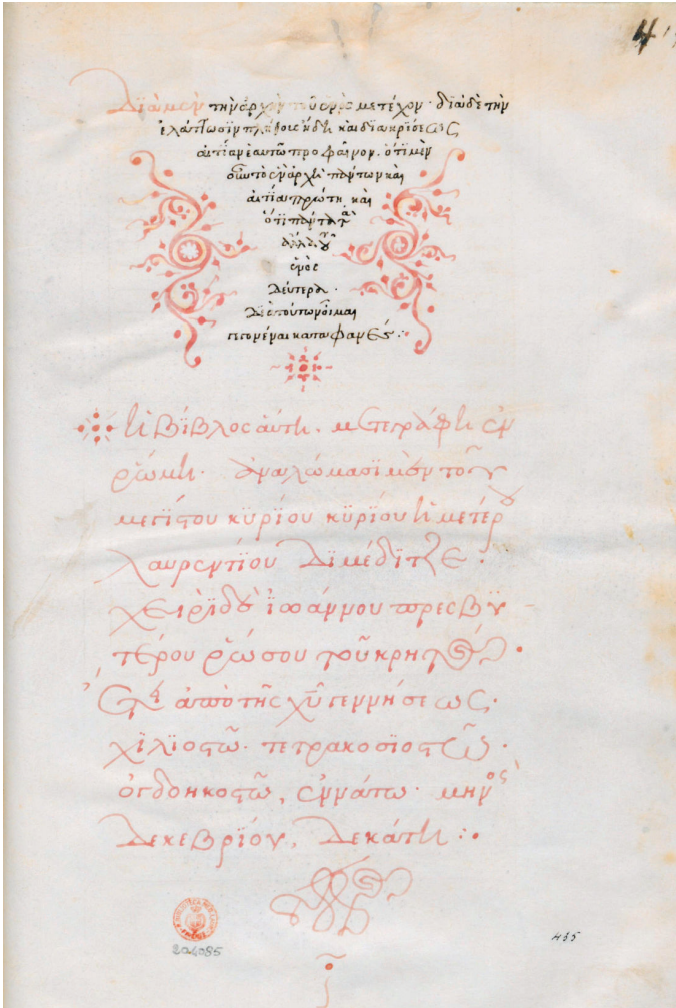 4
Διὰ μὲν τὴν ἀρχὴν τοῦ ἑνὸς μετέχον· διὰ δὲ τὴν
ἐλάττωσιν πλήθους ἤδη καὶ διακρίσεως
αἰτίαν ἑαυτῷ προφαῖνον. ὅτι μὲν
πάντων καὶ
αἰτία πρώτη καὶ
ὅτι πάντα τὰ
ἄλλα
ἑνὸς
δεύτερα·
γεγονέναι καταφανές:
ἡ βΐβλος αὕτη, μετεγράφη ἐν
ῥώμη· ἀναλώμασϊ μὲν τοῦ
μεγΐστου κυρΐου κυρΐου ἡμετέρου
λαυρεντΐου Δϊμέδϊτζε·
χειρϊ δὲ ϊωάννου πρεσβυ
τέρου ῥώσου τοῦ κρητὸς·
Ἔτει ἀπὸ τῆς χῦ γεννήσεως·
χϊλϊοστῶ· τετρακοσϊοστῶ·
ὀγδοηκοστῶ, ἐννάτω· μηνὸς
Δεκεβρΐου, Δεκάτη:·
224085
465